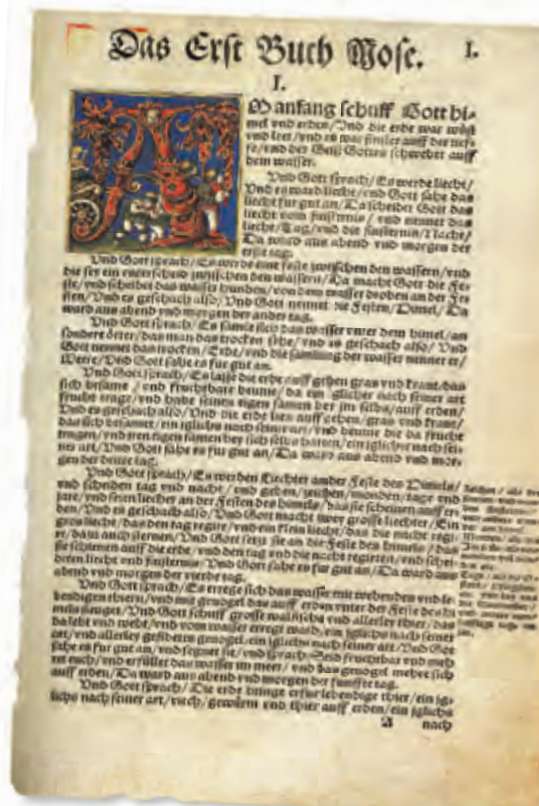 Das Erst Buch Mose. I.
I.
M anfang schuff Gott hi-
mel vnd erden/Vnd die erde war wüst
vnd leer/vnd es war finster auff der tief-
fe/vnd der Geist Gottes schwebet auff
dem wasser.
Vnd Gott sprach/Es werde liecht/
Vnd es ward liecht/vnd Gott sahe das
liecht fur gut an/Da scheidet Gott das
liecht vom finsternis/vnd nennet das
liecht/Tag/vnd die finsternis/Nacht/
Da ward aus abend vnd morgen der
erste tag.
Vnd Gott sprach/Es werde eine feste zwisschen den wassern/vnd
die sey ein vnterscheid zwisschen den wassern/Da macht Gott die Fe-
ste/vnd scheidet das wasser hunden/von dem wasser droben an der Fe-
sten/Vnd es geschach also/Vnd Gott nennet die Festen/Himel/Da
ward aus abend vnd morgen der ander tag.
Vnd Gott sprach/Es samle sich das wasser vnter dem himel/an
sondere örter/das man das trocken sehe/vnd es geschach also/Vnd
Gott nennet das trocken/Erde/vnd die samlung der wasser nennet er/
Meere/Vnd Gott sahe es fur gut an.
Vnd Gott sprach/Es lasse die erde auff gehen gras vnd kraut/das
sich besame/vnd fruchtbare beume/da ein iglicher nach seiner art
frucht trage/vnd habe seinen eigen samen bey jm selbs/auff erden/
Vnd es geschach also/Vnd die erde lies auff gehen/gras vnd kraut/
das sich besamet/ein iglichs nach seiner art/vnd beume die da frucht
trugen/vnd jren eigen samen bey sich selbs hatten/ein iglicher nach sei-
ner art/Vnd Gott sahe es fur gut an/Da ward aus abend vnd mor-
gen der dritte tag.
Vnd Gott sprach/Es werden Liechter an der Feste des Himels/
vnd scheiden tag vnd nacht/vnd geben/zeichen/monden/tage vnd
jare/vnd seien liechter an der Festen des himels/das sie scheinen auff er-
den/Vnd es geschach also/Vnd Gott macht zwey grosse liechter/Ein
gros liecht/das den tag regire/vnd ein klein liecht/das die nacht regi-
re/dazu auch sternen/Vnd Gott setzt sie an die Feste des himels/das
sie schienen auff die erde/vnd den tag vnd die nacht regierten/vnd schei-
deten liecht vnd finsternis/Vnd Gott sahe es fur gut an/Da ward aus
abend vnd morgen der vierde tag.
Vnd Gott sprach/Es errege sich das wasser mit webenden vnd le-
bendigen thieren/vnd mit geuogel das auff erden vnter der Feste des hi-
mels fleuget/Vnd Gott schuff grosse walfissche vnd allerley thier/das
da lebt vnd webt/vnd vom wasser erregt ward/ein iglichs nach seiner
art/vnd allerley gefidderts geuogel/ein iglichs nach seiner art/Vnd Gott
sahe es fur gut an/vnd segnet sie/vnd sprach/Seid fruchtbar vnd meh-
ret euch/vnd erfüllet das wasser im meer/vnd das geuogel mehre sich
auff erden/Da ward aus abend vnd morgen der funffte tag.
Vnd Gott sprach/Die erde bringe erfur lebendige thier/ein ig-
lichs nach seiner art/viech/gewürm vnd thier auff erden/ein iglichs
A nach